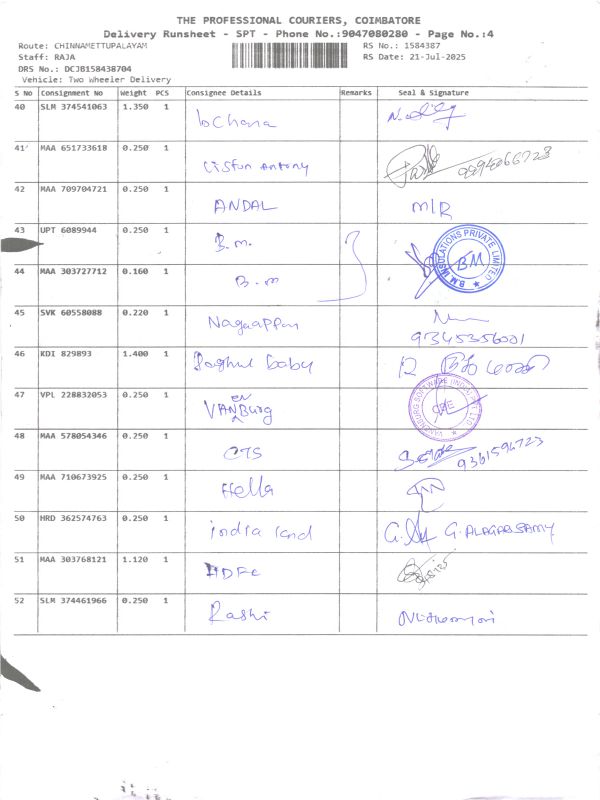 THE PROFESSIONAL COURIERS, COIMBATORE
Delivery Runsheet - SPT - Phone No.:9047080280 - Page No.:4
Route: CHINNAMETTUPALAYAM RS No.: 1584387
Staff: RAJA RS Date: 21-Jul-2025
DRS No.: DCJB158438704
Vehicle: Two Wheeler Delivery
S No Consignment No Weight PCS Consignee Details Remarks Seal & Signature
40 SLM 374541063 1.350 1
41 MAA 651733618 0.250 1 Antony
42 MAA 709704721 0.250 1 ANDAL M/R
43 UPT 6089944 0.250 1 B.m. B.M INSULATIONS PRIVATE LIMITED BM
44 MAA 303727712 0.160 1 B.m
45 SVK 60558088 0.220 1 Nagaappan
9345356001
46 KDI 829893 1.400 1 baby
47 VPL 228832053 0.250 1 VANenBurg
48 MAA 578054346 0.250 1 CTS 9361594723
49 MAA 710673925 0.250 1 Hella
50 HRD 362574763 0.250 1 india land G. ALAGARSAMY
51 MAA 303768121 1.120 1 HDFC
52 SLM 374461966 0.250 1 Rashi